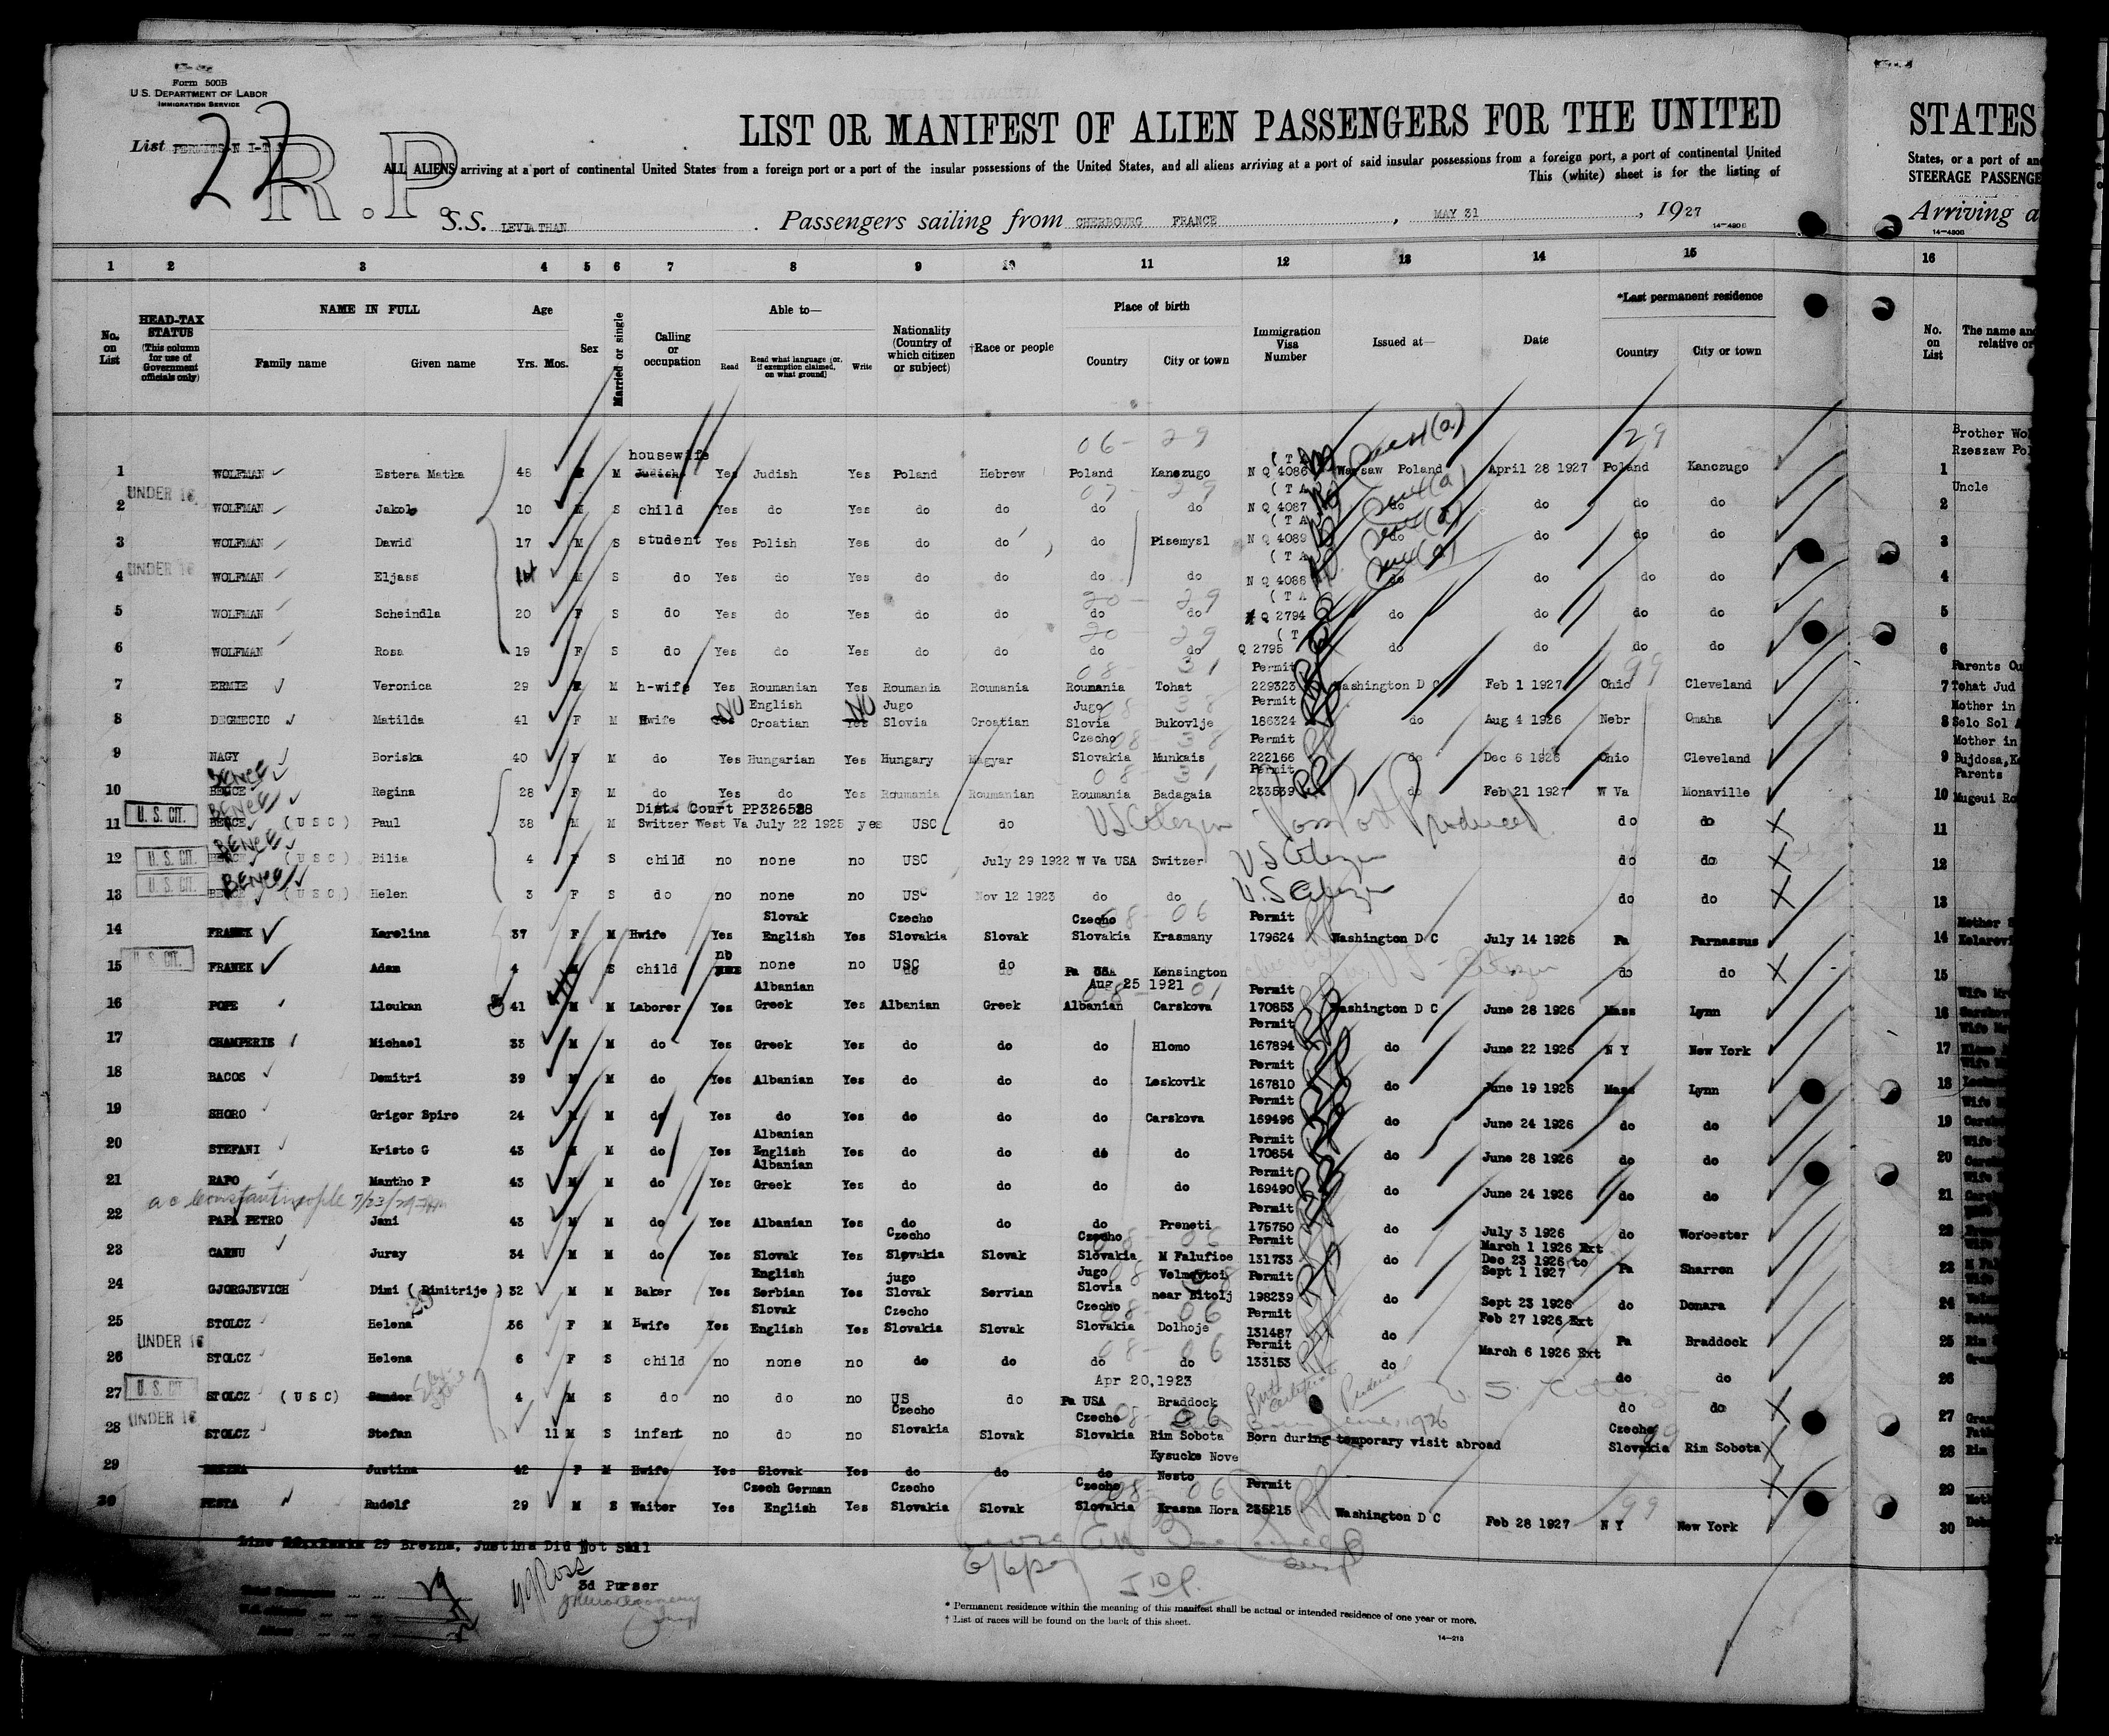 Form 500B
U. S. DEPARTMENT OF LABOR
IMMIGRATION SERVICE
List PERMITS N I-T
22
R.P.
LIST OR MANIFEST OF ALIEN PASSENGERS FOR THE UNITED
STATES
ALL ALIENS arriving at a port of continental United States from a foreign port or a port of the insular possessions of the United States, and all aliens arriving at a port of said insular possessions from a foreign port, a port of continental United
States, or a port of
This (white) sheet is for the listing of
STEERAGE PASSENGE
S.S. LEVIATHAN . Passengers sailing from CHERBOURG FRANCE , MAY 31 , 1927
Arriving a
14-430B
14-430B
1 2 3 4 5 6 7 8 9 10 11 12 13 14 15 16
No. on List
HEAD-TAX STATUS (This column for use of Government officials only)
NAME IN FULL
Family name Given name
Age
Yrs. Mos.
Sex
Married or single
Calling or occupation
Able to—
Read Read what language (or, if exemption claimed, on what ground) Write
Nationality (Country of which citizen or subject)
†Race or people
Place of birth
Country City or town
Immigration Visa Number
Issued at—
Date
*Last permanent residence
Country City or town
No. on List
The name an
relative or
06- 29 29
1 WOLFMAN Estera Matka 48 M housewife Judish Yes Judish Yes Poland Hebrew Poland Kanczugo N Q 4086 Warsaw Poland April 28 1927 Poland Kanczugo 1 Brother Wol Rzeszaw Pol
UNDER 16
2 WOLFMAN Jakob 10 M S child Yes do Yes do do do do N Q 4087 do do do do 2 Uncle
3 WOLFMAN Dawid 17 M S student Yes Polish Yes do do do Pisemysl N Q 4089 do do do do 3
UNDER 16
4 WOLFMAN Eljass 14 M S do Yes do Yes do do do do N Q 4088 do do do do 4
20- 29
5 WOLFMAN Scheindla 20 F S do Yes do Yes do do do do Q 2794 do do do do 5
20- 29
6 WOLFMAN Rosa 19 F S do Yes do Yes do do do do Q 2795 do do do do 6
08- 31 99
7 ERMIE Veronica 29 M h-wife Yes Roumanian Yes Roumania Roumania Roumania Tohat Permit 229323 Washington D C Feb 1 1927 Ohio Cleveland 7 Parents Tohat Jud
8 DEGMECIC Matilda 41 F M Hwife Yes NO English Croatian Yes NO Jugo Slovia Croatian Jugo Slovia Bukovlje Permit 186324 do Aug 4 1926 Nebr Omaha 8 Mother in Selo Sol
9 NAGY Boriska 40 F M do Yes Hungarian Yes Hungary Magyar Czecho Slovakia Munkais Permit 222166 do Dec 6 1926 Ohio Cleveland 9 Mother in Bujdosa,
BENCE
10 BENCE Regina 28 F M do Yes do Yes Roumania Roumanian Roumania Badagaia Permit 233539 do Feb 21 1927 W Va Monaville 10 Parents Mugeui
U. S. CIT. BENCE
11 BENCE ( U S C ) Paul 38 M M Dist. Court PP326528 Switzer West Va July 22 1925 yes USC do US Citizen Passport Produced do do X 11
U. S. CIT. BENCE
12 ( U S C ) Bilia 4 F S child no none no USC July 29 1922 W Va USA Switzer U S Citizen do do X 12
U. S. CIT. BENCE
13 ( U S C ) Helen 3 F S do no none no USC Nov 12 1923 do do U.S Citizen do do X 13
14 FRANEK Karolina 37 F M Hwife Yes Slovak English Yes Czecho Slovakia Slovak Czecho Slovakia Krasmany Permit 179624 Washington D C July 14 1926 Pa Parnassus 14 Mother
U. S. CIT.
15 FRANEK Adam 4 M S child no none no USC do Pa USA Kensington Aug 25 1921 U S Citizen do do X 15
16 POPE Lloukan 41 M M Laborer Yes Albanian Greek Yes Albanian Greek Albanian Carskova Permit 170853 Washington D C June 28 1926 Mass Lynn 16 Wife
17 CHAMPERIS Michael 33 M M do Yes Greek Yes do do do Hlomo Permit 167894 do June 22 1926 N Y New York 17 Wife
18 BACOS Demitri 39 M M do Yes Albanian Yes do do do Leskovik Permit 167810 do June 19 1926 Mass Lynn 18 Wife
19 SHORO Griger Spiro 24 M M do Yes do Yes do do do Carskova Permit 169496 do June 24 1926 do do 19 Wife
20 STEFANI Kristo G 43 M M do Yes Albanian English Yes do do do do Permit 170854 do June 28 1926 do do 20 Wife
21 RAPO Mantho P 43 M M do Yes Albanian Greek Yes do do do do Permit 169490 do June 24 1926 do do 21 Wife
a c Constantinople 7/23/29
22 PAPA PETRO Jani 43 M M do Yes Albanian Yes do do do Preneti Permit 175750 do July 3 1926 do Worcester 22
23 CARNU Juray 34 M M do Yes Slovak Yes Czecho Slovakia Slovak Czecho Slovakia M Falufice Permit 131733 do March 1 1926 Ext Dec 23 1926 to Sept 1 1927 Pa Sharron 23
24 GJORGJEVICH Dimi ( Dimitrije ) 32 M M Baker Yes English Serbian Yes jugo Slovak Servian Jugo Slovia near Bitolj Permit 198239 do Sept 23 1926 do Donara 24
25 STOLCZ Helena 36 F M Hwife Yes Slovak English Yes Czecho Slovakia Slovak Czecho Slovakia Dolhoje Permit 131487 do Feb 27 1926 Ext Pa Braddock 25
UNDER 16
26 STOLCZ Helena 6 F S child no none no do do do do Permit 133153 do March 6 1926 Ext do do 26
U. S. CIT.
27 STOLCZ ( U S C ) Sander 4 M S do no do no US do Apr 20,1923 Pa USA Braddock Birth Certificate Produced U. S. Citizen do do X 27
UNDER 16
28 STOLCZ Stefan 11 M S infant no do no Czecho Slovakia Slovak Czecho Slovakia Rim Sobota Born during temporary visit abroad Czecho Slovakia Rim Sobota X 28
29 Justina 42 F M Hwife Yes Slovak Yes do do do Kysucke Nove Mesto X 29
30 PESTA Rudolf 29 M S Waiter Yes Czech German English Yes Czecho Slovakia Slovak Czecho Slovakia Krasna Hora Permit 235215 Washington D C Feb 28 1927 N Y New York 30
29 Brezna, Justina Did Not Sail
29
3d Purser
6/6/27
* Permanent residence within the meaning of this manifest shall be actual or intended residence of one year or more.
† List of races will be found on the back of this sheet.
14-213